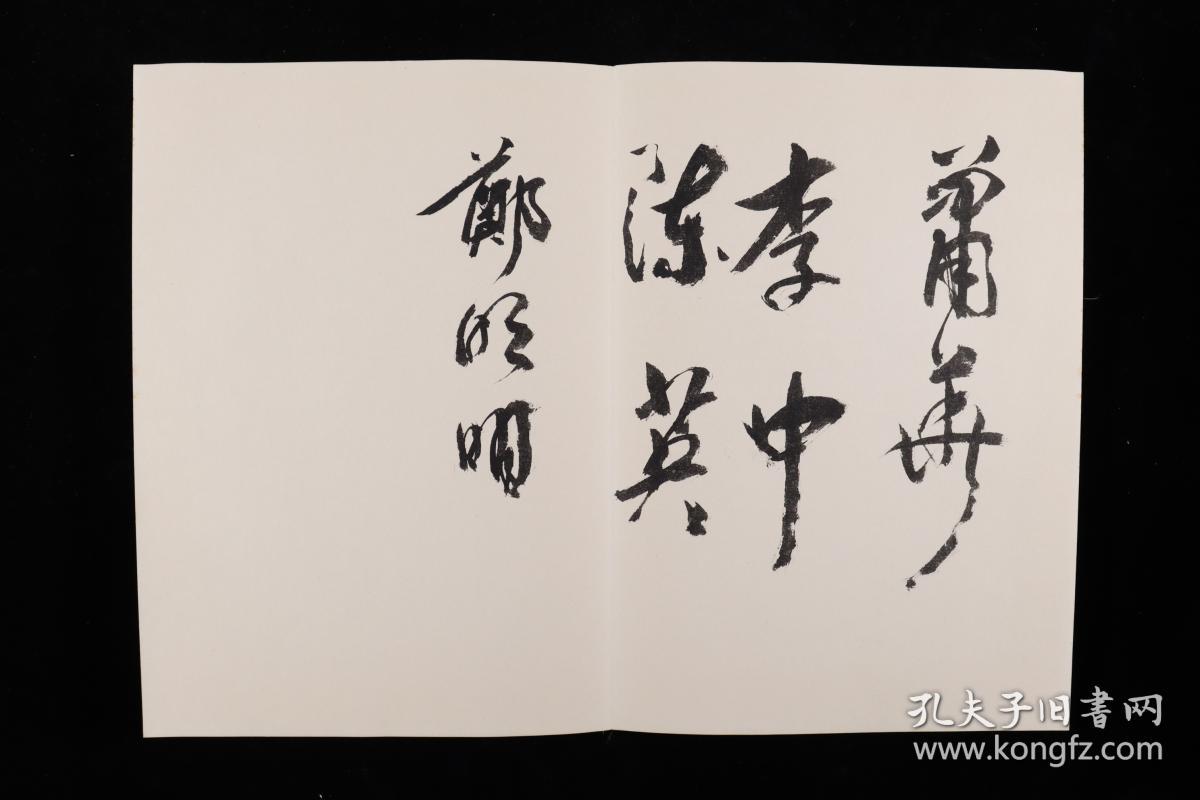 萧华
李中
陈英
鄭明
孔夫子旧書网
www.kongfz.com